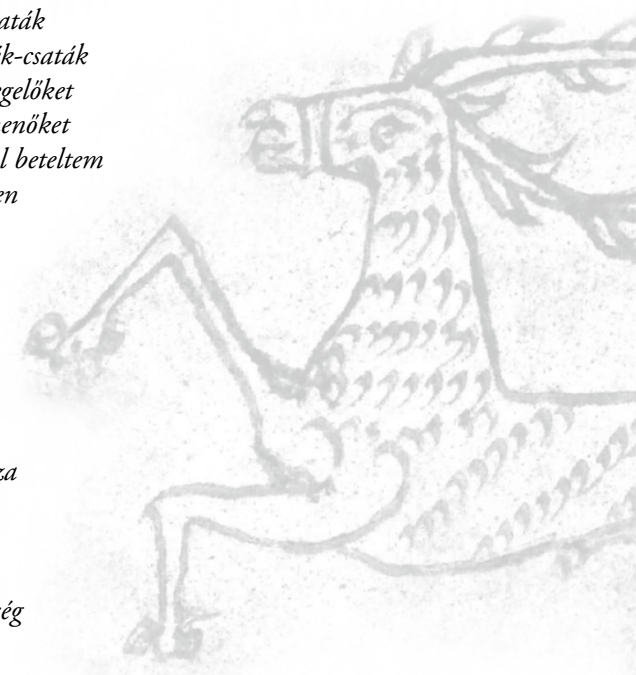 aták
k-csaták
gelőket
enőket
l beteltem
en
za
ég